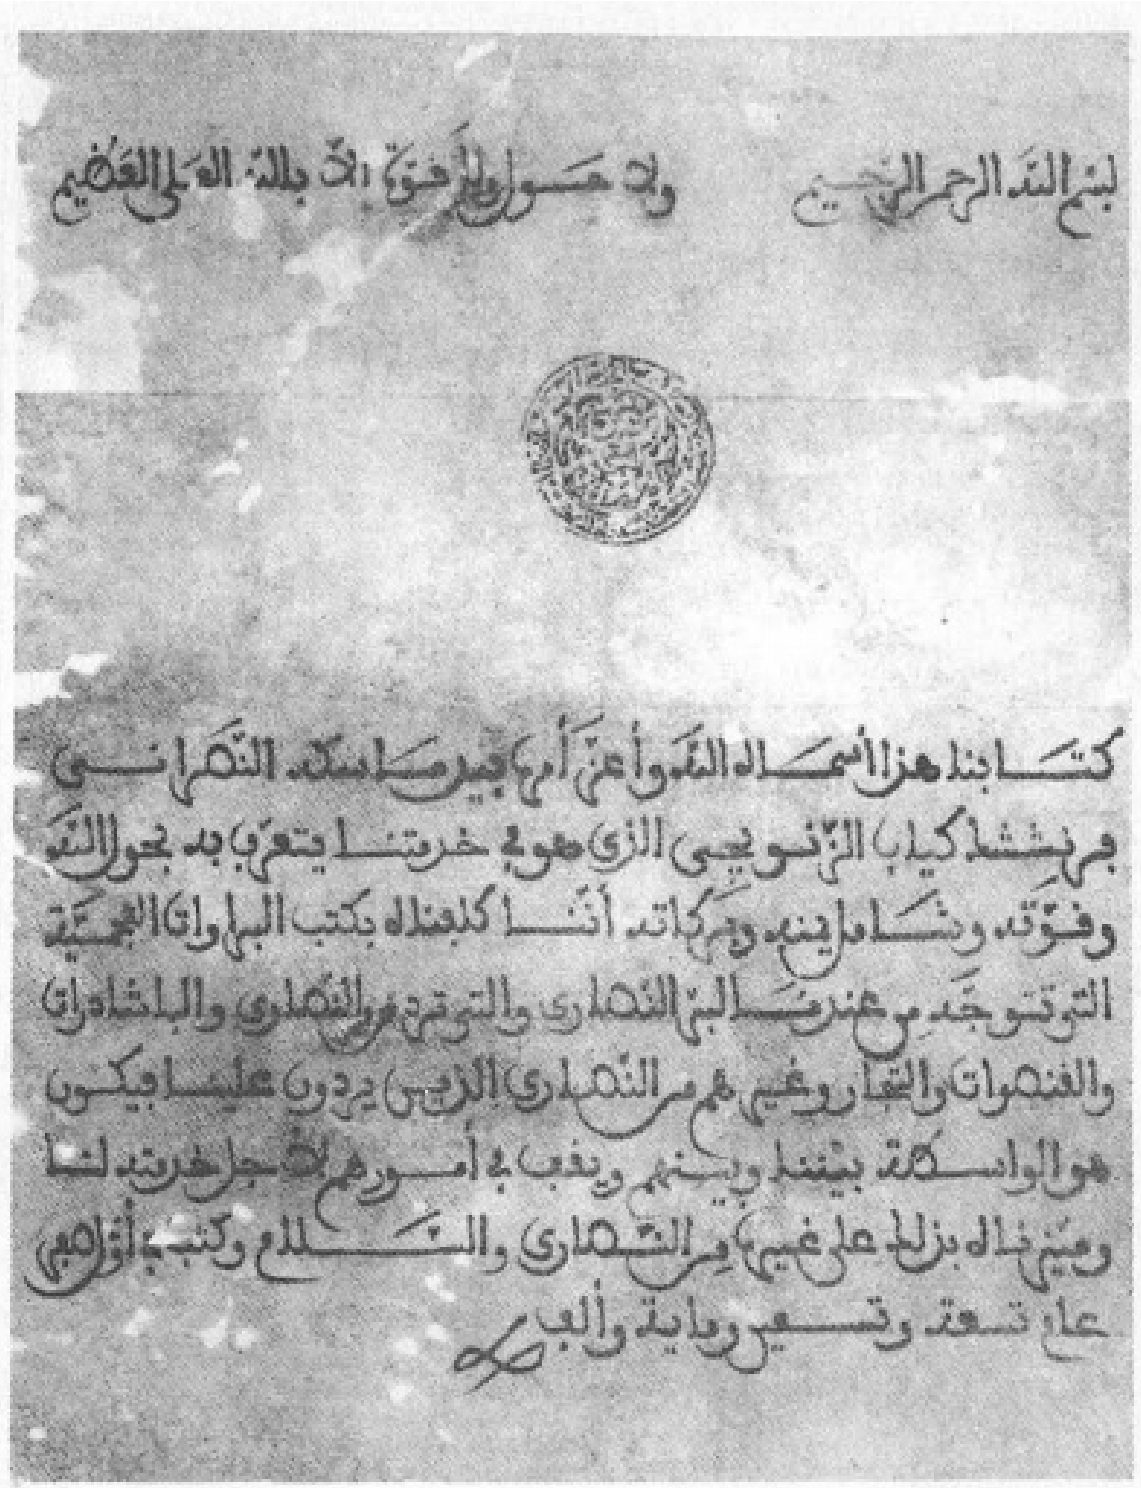 بسم الله الرحمن الرحيم ولا حول ولا قوة إلا بالله العلي العظيم
كتابنا هذا أسماه الله وأعز أمره بيد ماسكه النصراني
فرنششك كياب الزنويحيى الذي هو في خدمتنا يتعرف به بحول الله
وقوته وشامل يمنه وبركاته أننا كلفناه بكتب البراوات العجمية
التي تتوجه من عندنا لبر النصارى والتي ترد من النصارى والباشادرات
والقنصوات والتجار وغيرهم من النصارى الذين يردون علينا فيكون
هو الواسطة بيننا وبينهم ويقف في أمورهم لأجل خدمته لنا
وميزناه بذلك على غيره من النصارى والسلام وكتب في أول صفر
عام تسعة وتسعين ومائة وألف